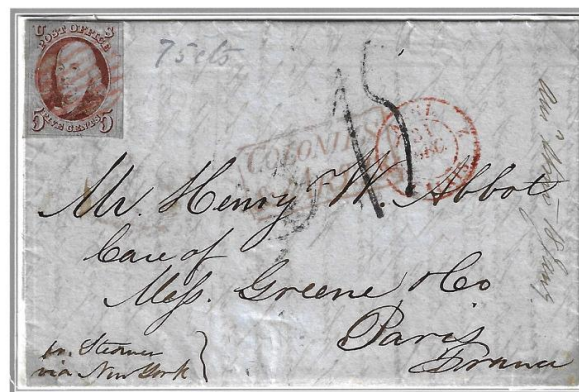 U S
POST OFFICE
FIVE CENTS
5 5
75 cts
15
COLONIES
Mr. Henry W. Abbot
Care of
Mess. Greene & Co
Paris
France
pr. Steamer
via New York